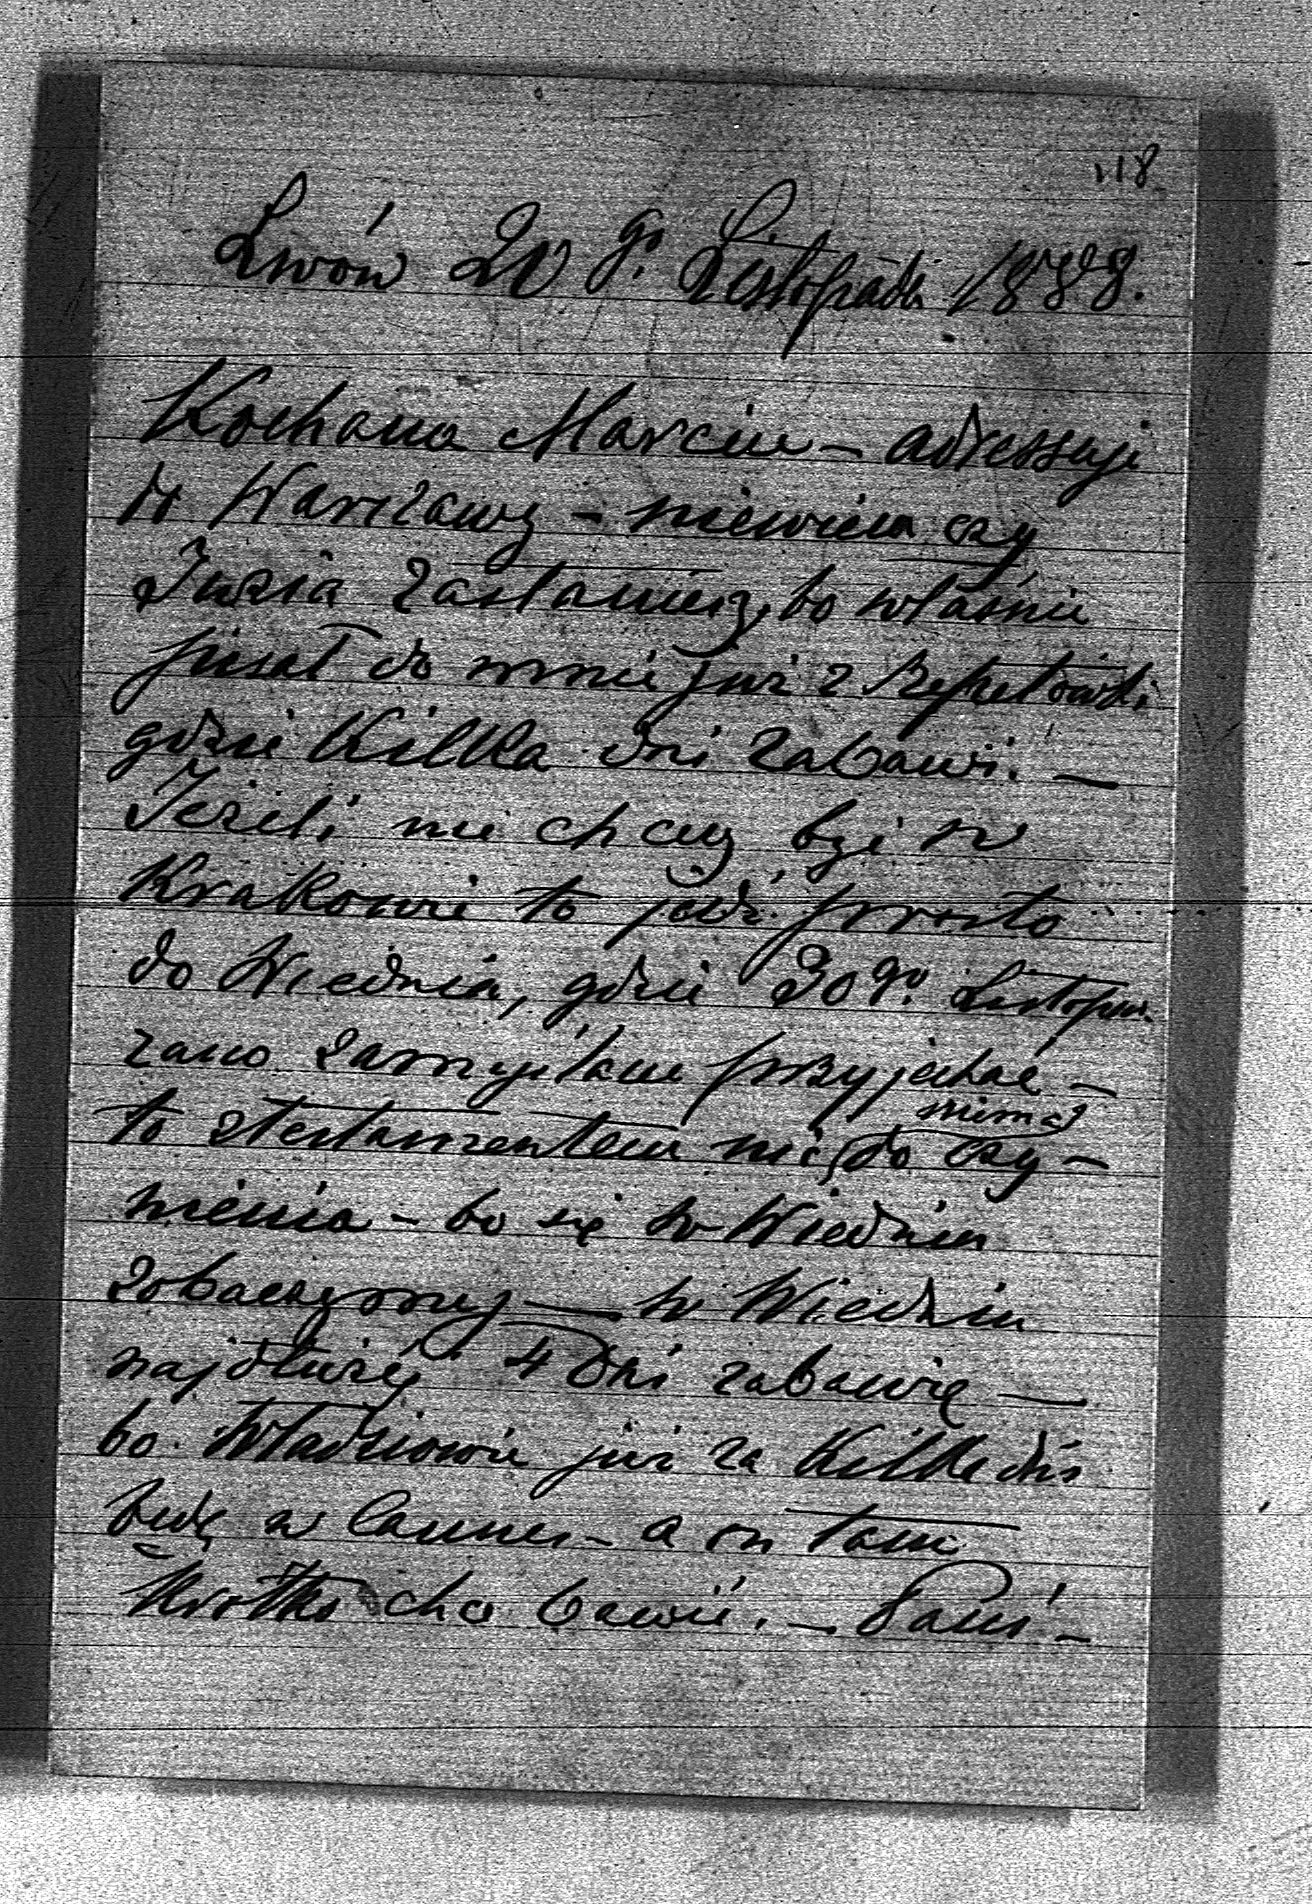 118
Lwów 20 go Listopada 1888.
Kochana Marciu – adressuję
do Warszawy – niewiem czy
Juzia zastaniesz, bo właśnie
pisał do mnie już z
gdzie Kilka dni zabawi. —
Jeżeli nie chcesz być w
Krakowie to jedź prosto
do Wiednia, gdzie 30 go Listopa.
rano zamyślam przyjechać –
to z testamentem nic niema do czy–
nienia – bo się w Wiedniu
zobaczymy — w Wiedniu
najdłużej 4 dni zabawię —
bo Władziowie już za Kilka dni
będę w Cannes – a on tam
Krótko chce bawić. – Pani –